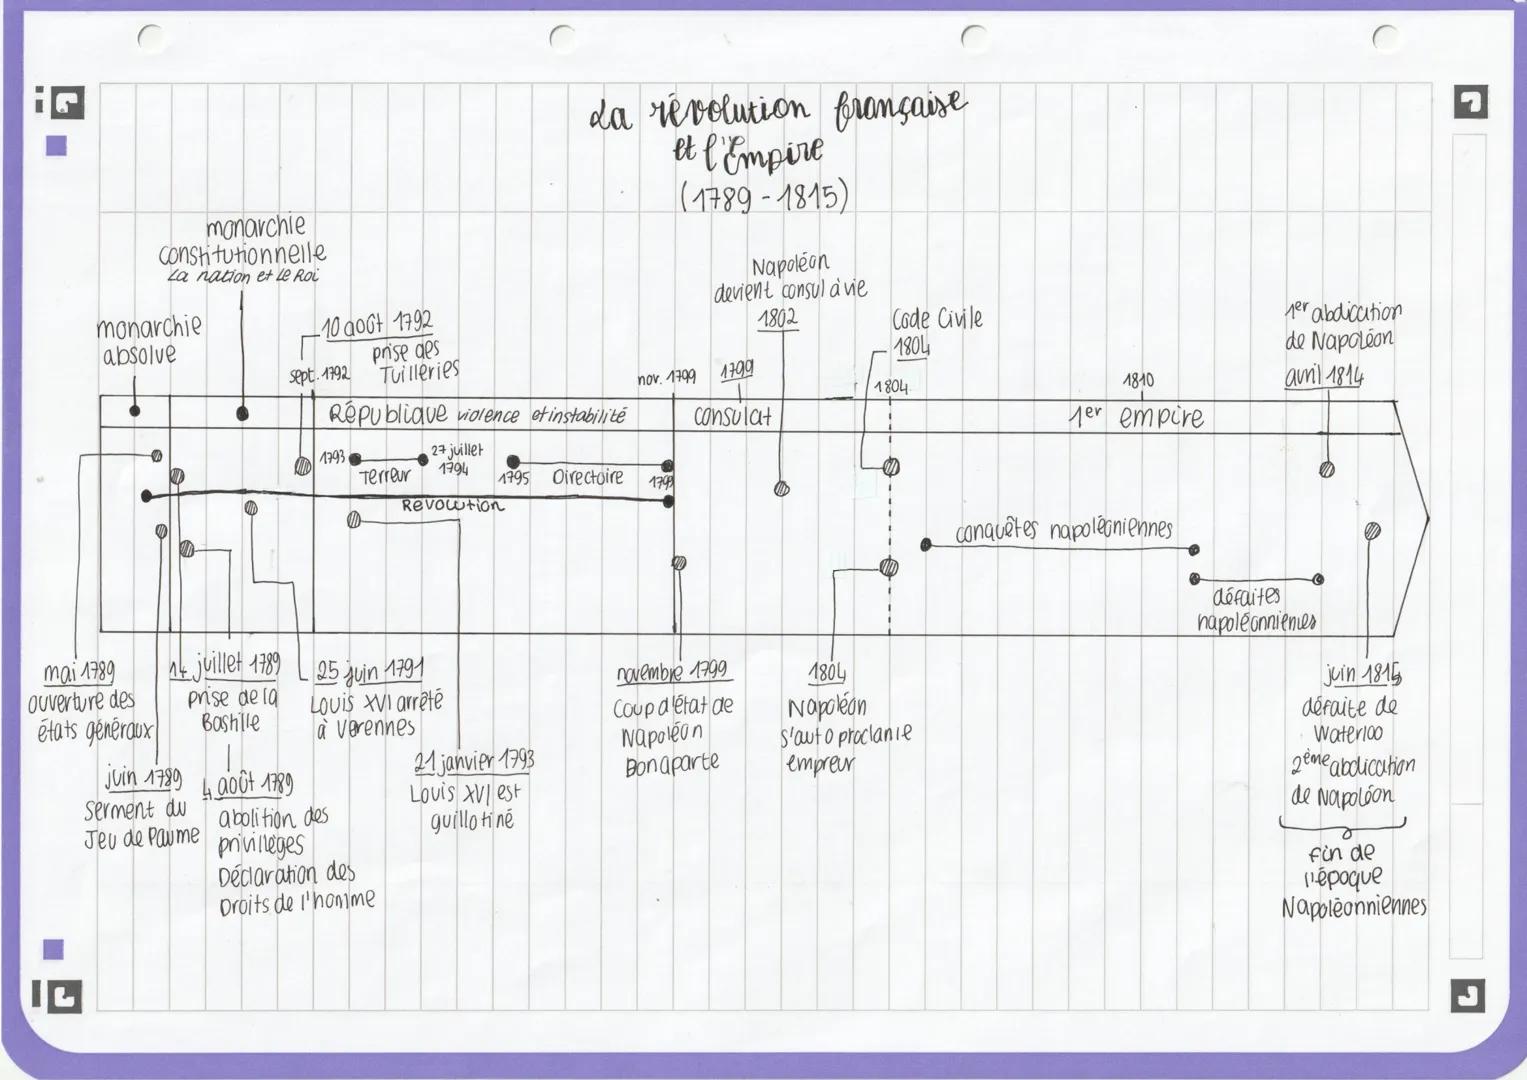 La révolution française
et l'Empire
(1789-1815)
monarchie
constitutionnelle
La nation et Le Roi
monarchie
absolve
10 août 1792
prise des
Tuilleries
sept. 1792
nov. 1799
1799
Napoléon
devient consul à vie
1802
Code Civile
1804
1804
1810
1er abdication
de Napoléon
avril 1814
République violence et instabilité
consulat
1er empire
1793
Terreur
27 juillet
1794
1795
Directoire
1799
Révolution
conquêtes napoléoniennes
défaites
napoléonniennes
mai 1789
ouverture des
états généraux
juin 1789
serment du
Jeu de Paume
14 juillet 1789
prise de la
Bastille
4 août 1789
abolition des
privilièges
Déclaration des
Droits de l'homme
25 juin 1791
Louis XVI arrêté
à Varennes
21 janvier 1793
Louis XVI est
guillotiné
novembre 1799
Coup d'état de
Napoléon
Bonaparte
1804
Napoléon
s'auto proclame
empreur
juin 1815
défaite de
Waterloo
2ème abdication
de Napoléon
fin de
l'époque
Napoléonniennes